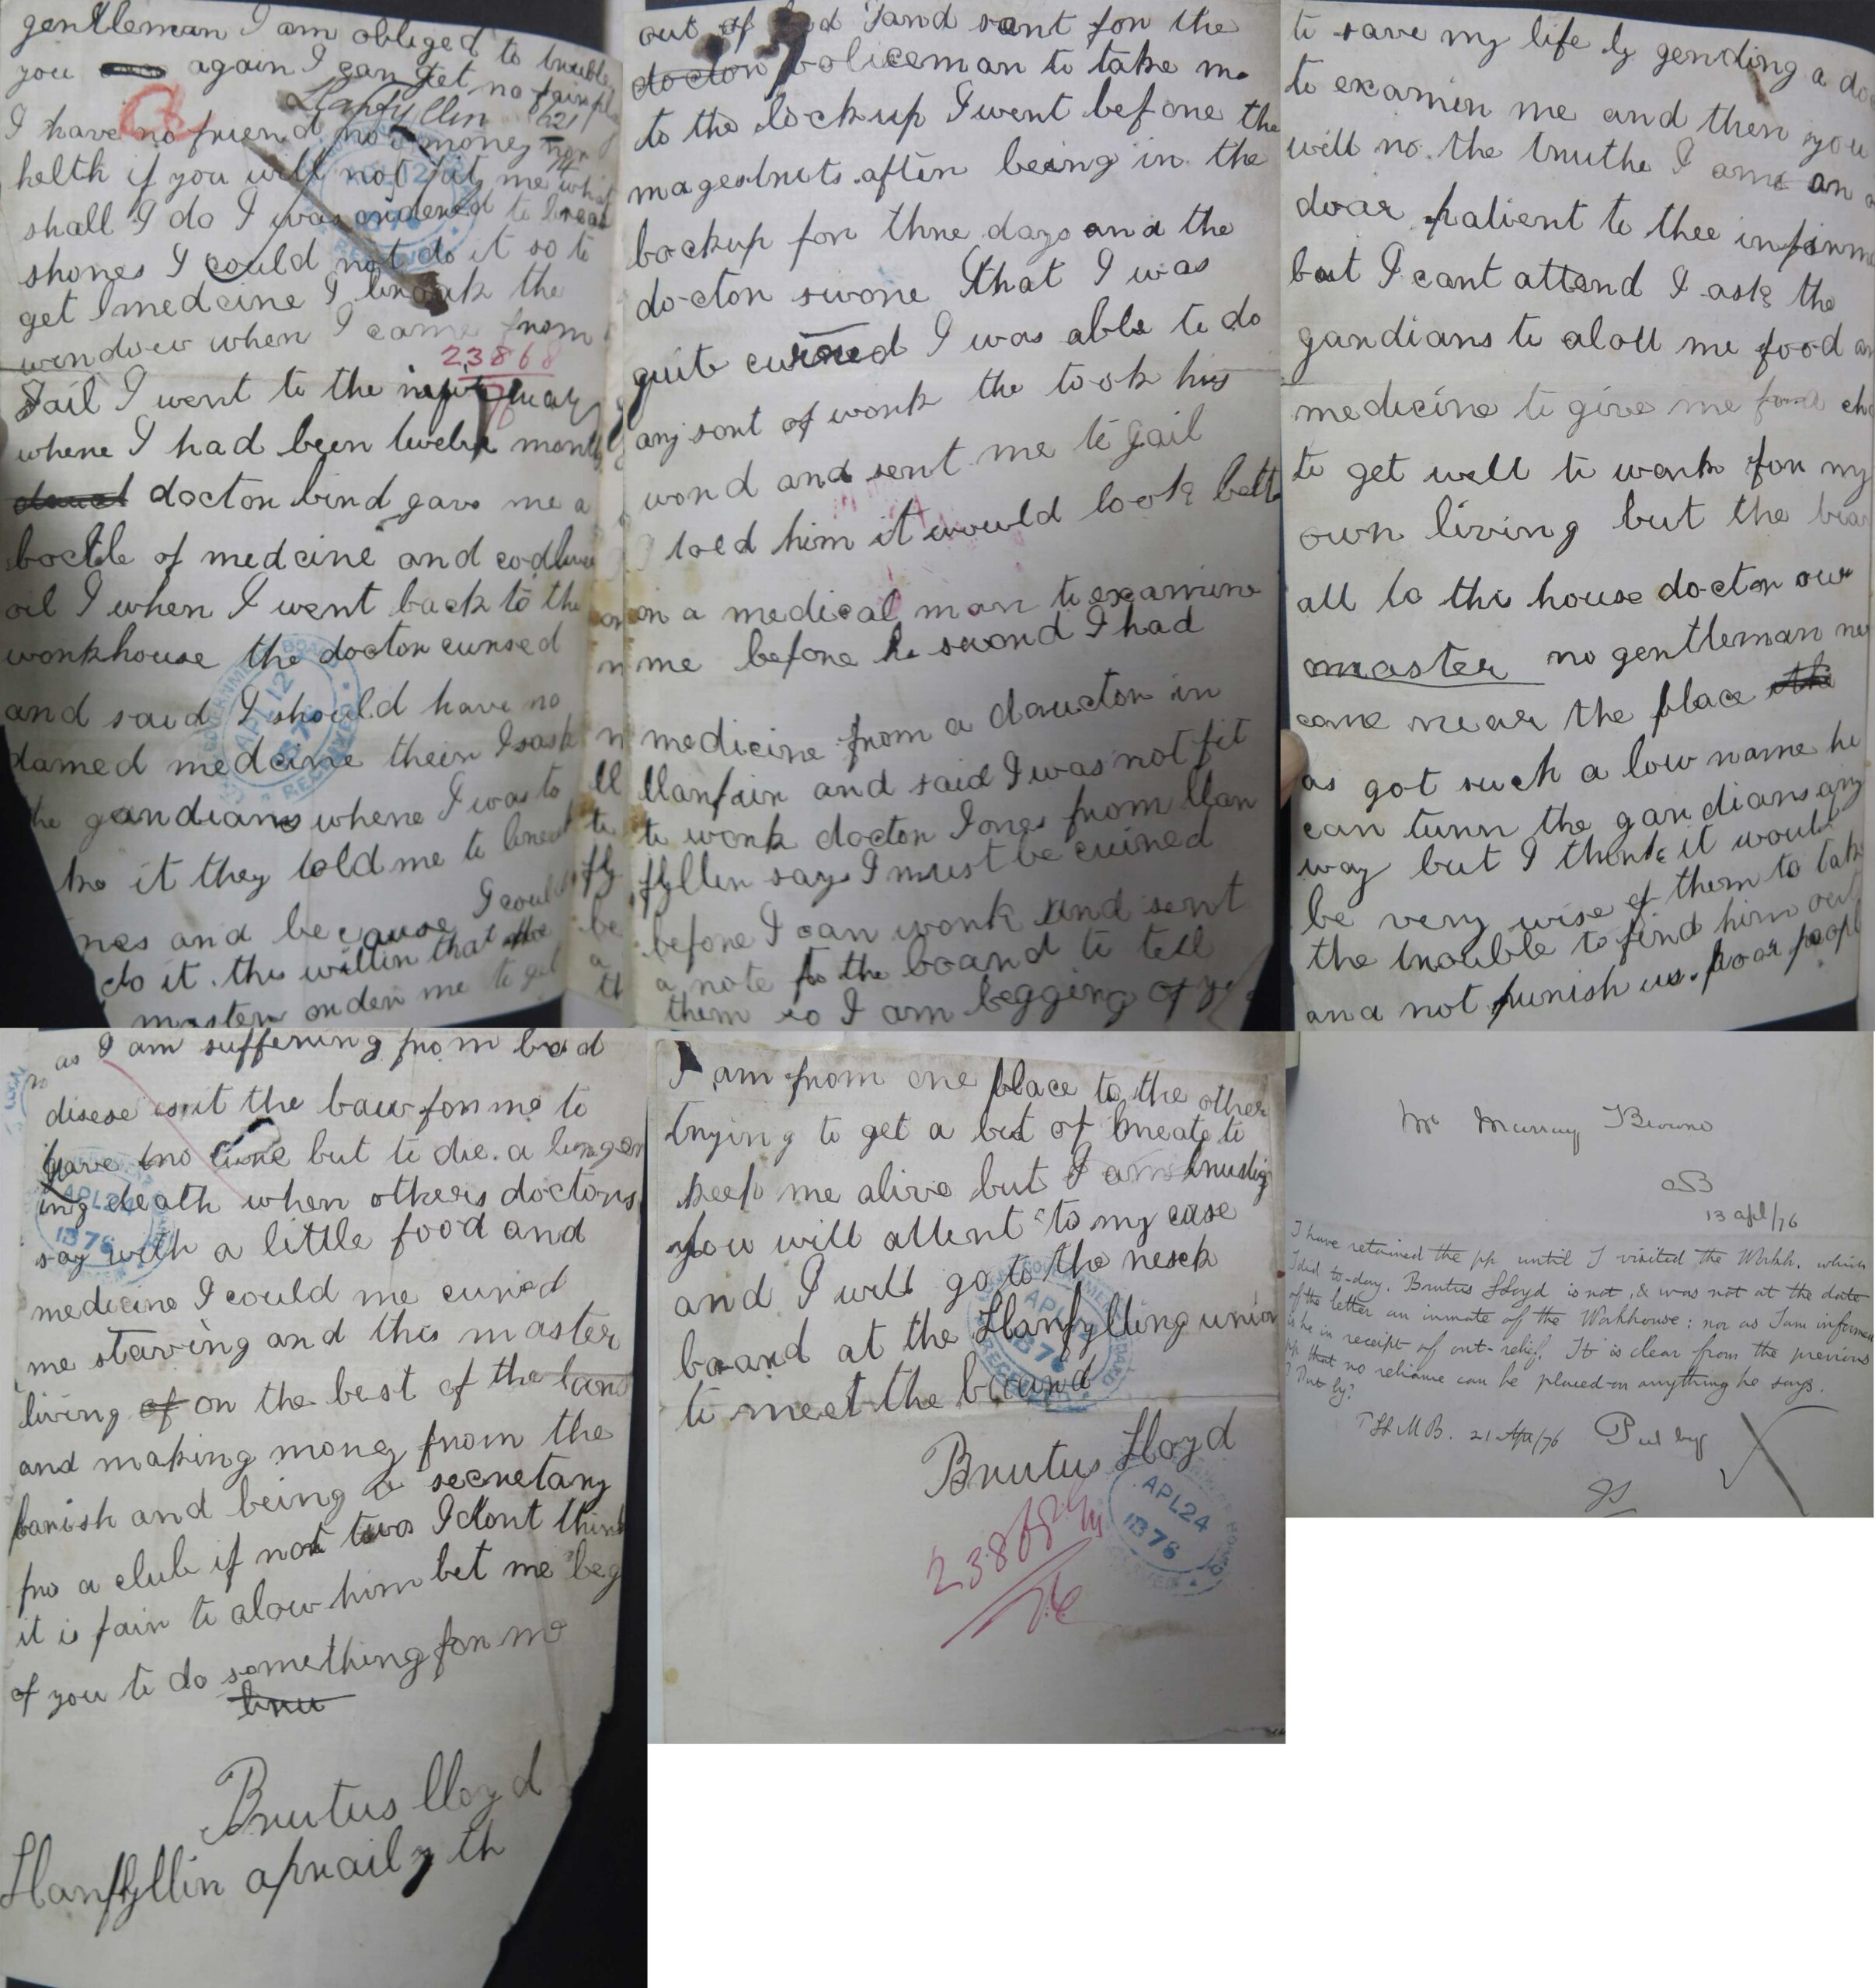 gentleman I am obliged to truble
you again I can get no fairpl
Llanfyllin 621
I have no friend no money nor
helth if you will not pity me what
shall I do I was ordered to break
shones I could not do it so to
get medcine I broak the
window when I came from
23868
76
Jail I went to the
where I had been twelve month
doctor bind gave me a
bottle of medcine and codliver
oil I when I went back to the
workhouse the doctor cursed
and said I should have no
damed medcine their I sask
he gardians where I was to
ke it they told me to breck
nes and because I could
do it. this willin that the
master orden me to get
out of bed and sant for the
doctor policeman to take me
to the lockup I went before the
magestruts after being in the
lockup for thre days and the
doctor swore that I was
quite cured I was able to do
any sort of work the took his
word and sent me to Jail
I told him it would look bett
on a medical man to examine
me before he sword I had
medicine from a dauctor in
llanfair and said I was not fit
to work doctor Jones from llan
fyllin says I must be cuired
before I can work and sent
a note to the board to tell
them so I am begging of yo
to save my life by gending a do
to examin me and then you
will no the truthe I ame an o
doar patient to thee infirm
but I cant attend I ask the
gardians to alou me food an
medicine to give me cha
to get well to work for my
own living but the
all to this house doctor our
master no gentleman ne
come near the place the
as got such a low name he
can turn the gardians any
way but I think it would
be very wise of them to take
the trouble to find him out
and not punish us poor peopl
as I am suffering from bad
disese isit the baw for me to
have no cure but to die a linger
ing death when others doctors
say with a little food and
medicine I could me cured
me starving and this master
living of on the best of the land
and making money from the
parish and being a secretary
fro a club if not two I dont think
it is fair to alow him let me beg
of you to do something for me
Brutus lloyd
Llanfyllin apraily th
I am from one place to the other
trying to get a bit of breate to
keep me alive but I am trustig
you will attent to my case
and I will go to the nesck
board at the Llanfylling union
to meet the board
Brutus Lloyd
23868
76
LOCAL GOVERNMENT BOARD
APL 12
1876
RECEIVED
APL24
1876
Mr Murray Browne
13 apl/76
I have retained the pp until I visited the Workh. which
I did to-day. Brutus Lloyd is not, & was not at the date
of the letter an inmate of the Workhouse: nor as I am informed
is he in receipt of out-relief. It is clear from the previous
pp that no reliance can be placed on anything he says.
? Put by?
T H M B. 21 Apr/76 Put by